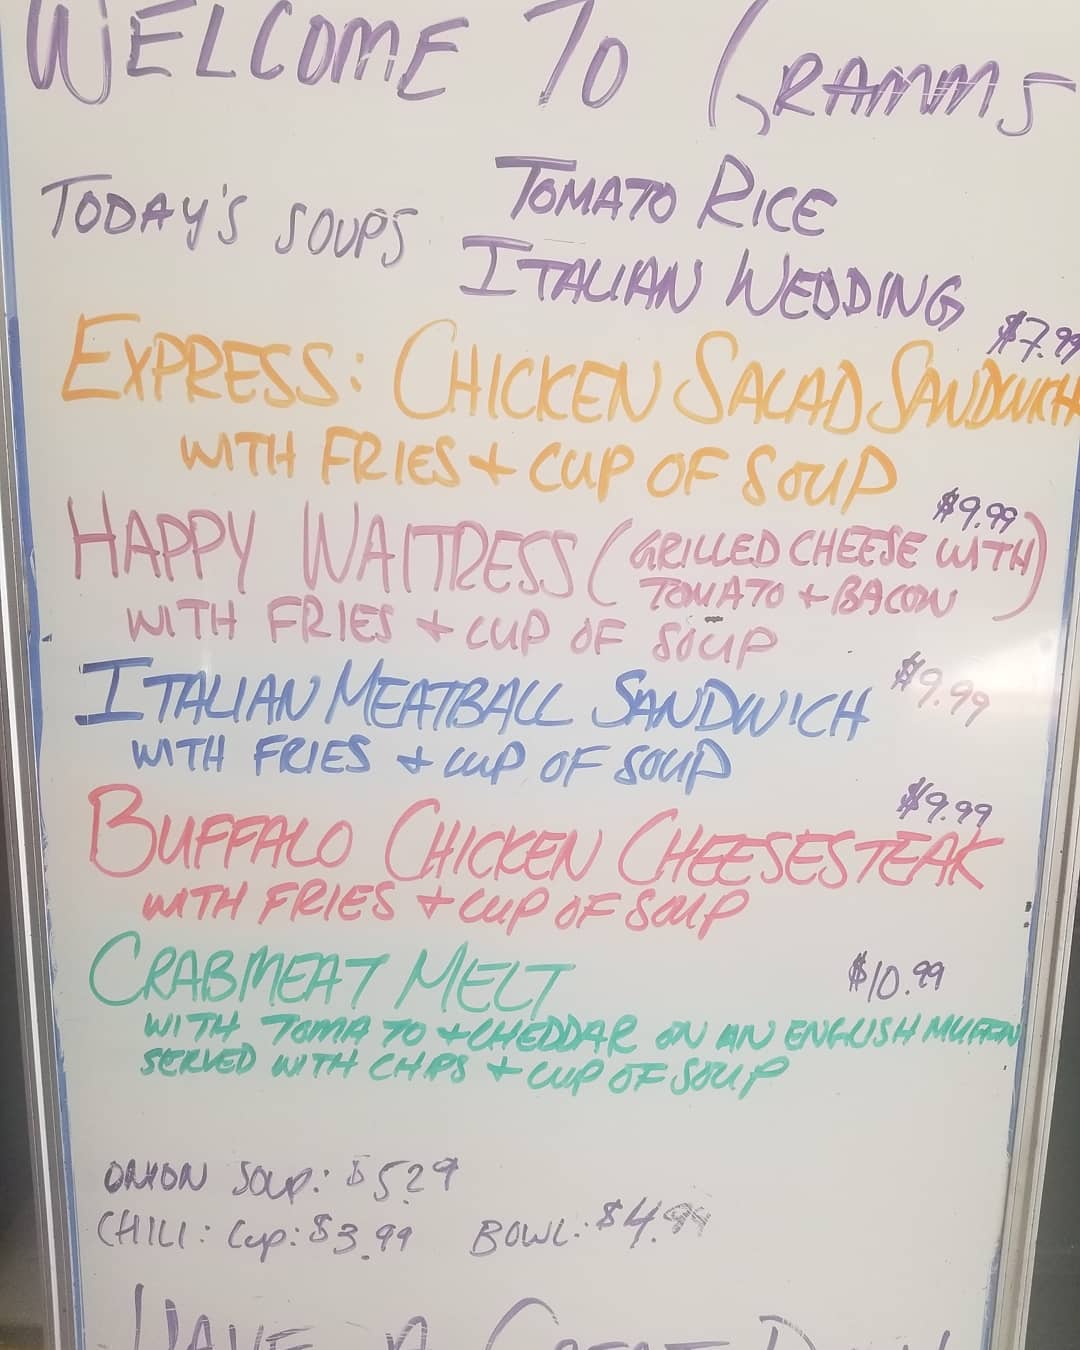 WELCOME TO GRAMMS
TODAY'S SOUPS TOMATO RICE
ITALIAN WEDDING
$7.99
EXPRESS: CHICKEN SALAD SANDWICH
WITH FRIES + CUP OF SOUP
$9.99
HAPPY WAITRESS (GRILLED CHEESE WITH
TOMATO + BACON)
WITH FRIES + CUP OF SOUP
ITALIAN MEATBALL SANDWICH $9.99
WITH FRIES + CUP OF SOUP
$9.99
BUFFALO CHICKEN CHEESESTEAK
WITH FRIES + CUP OF SOUP
CRABMEAT MELT $10.99
WITH TOMATO + CHEDDAR ON AN ENGLISH MUFFIN
SERVED WITH CHIPS + CUP OF SOUP
ONION SOUP: $5.29
CHILI: CUP: $3.99 BOWL: $4.99
HAVE A GREAT DAY!